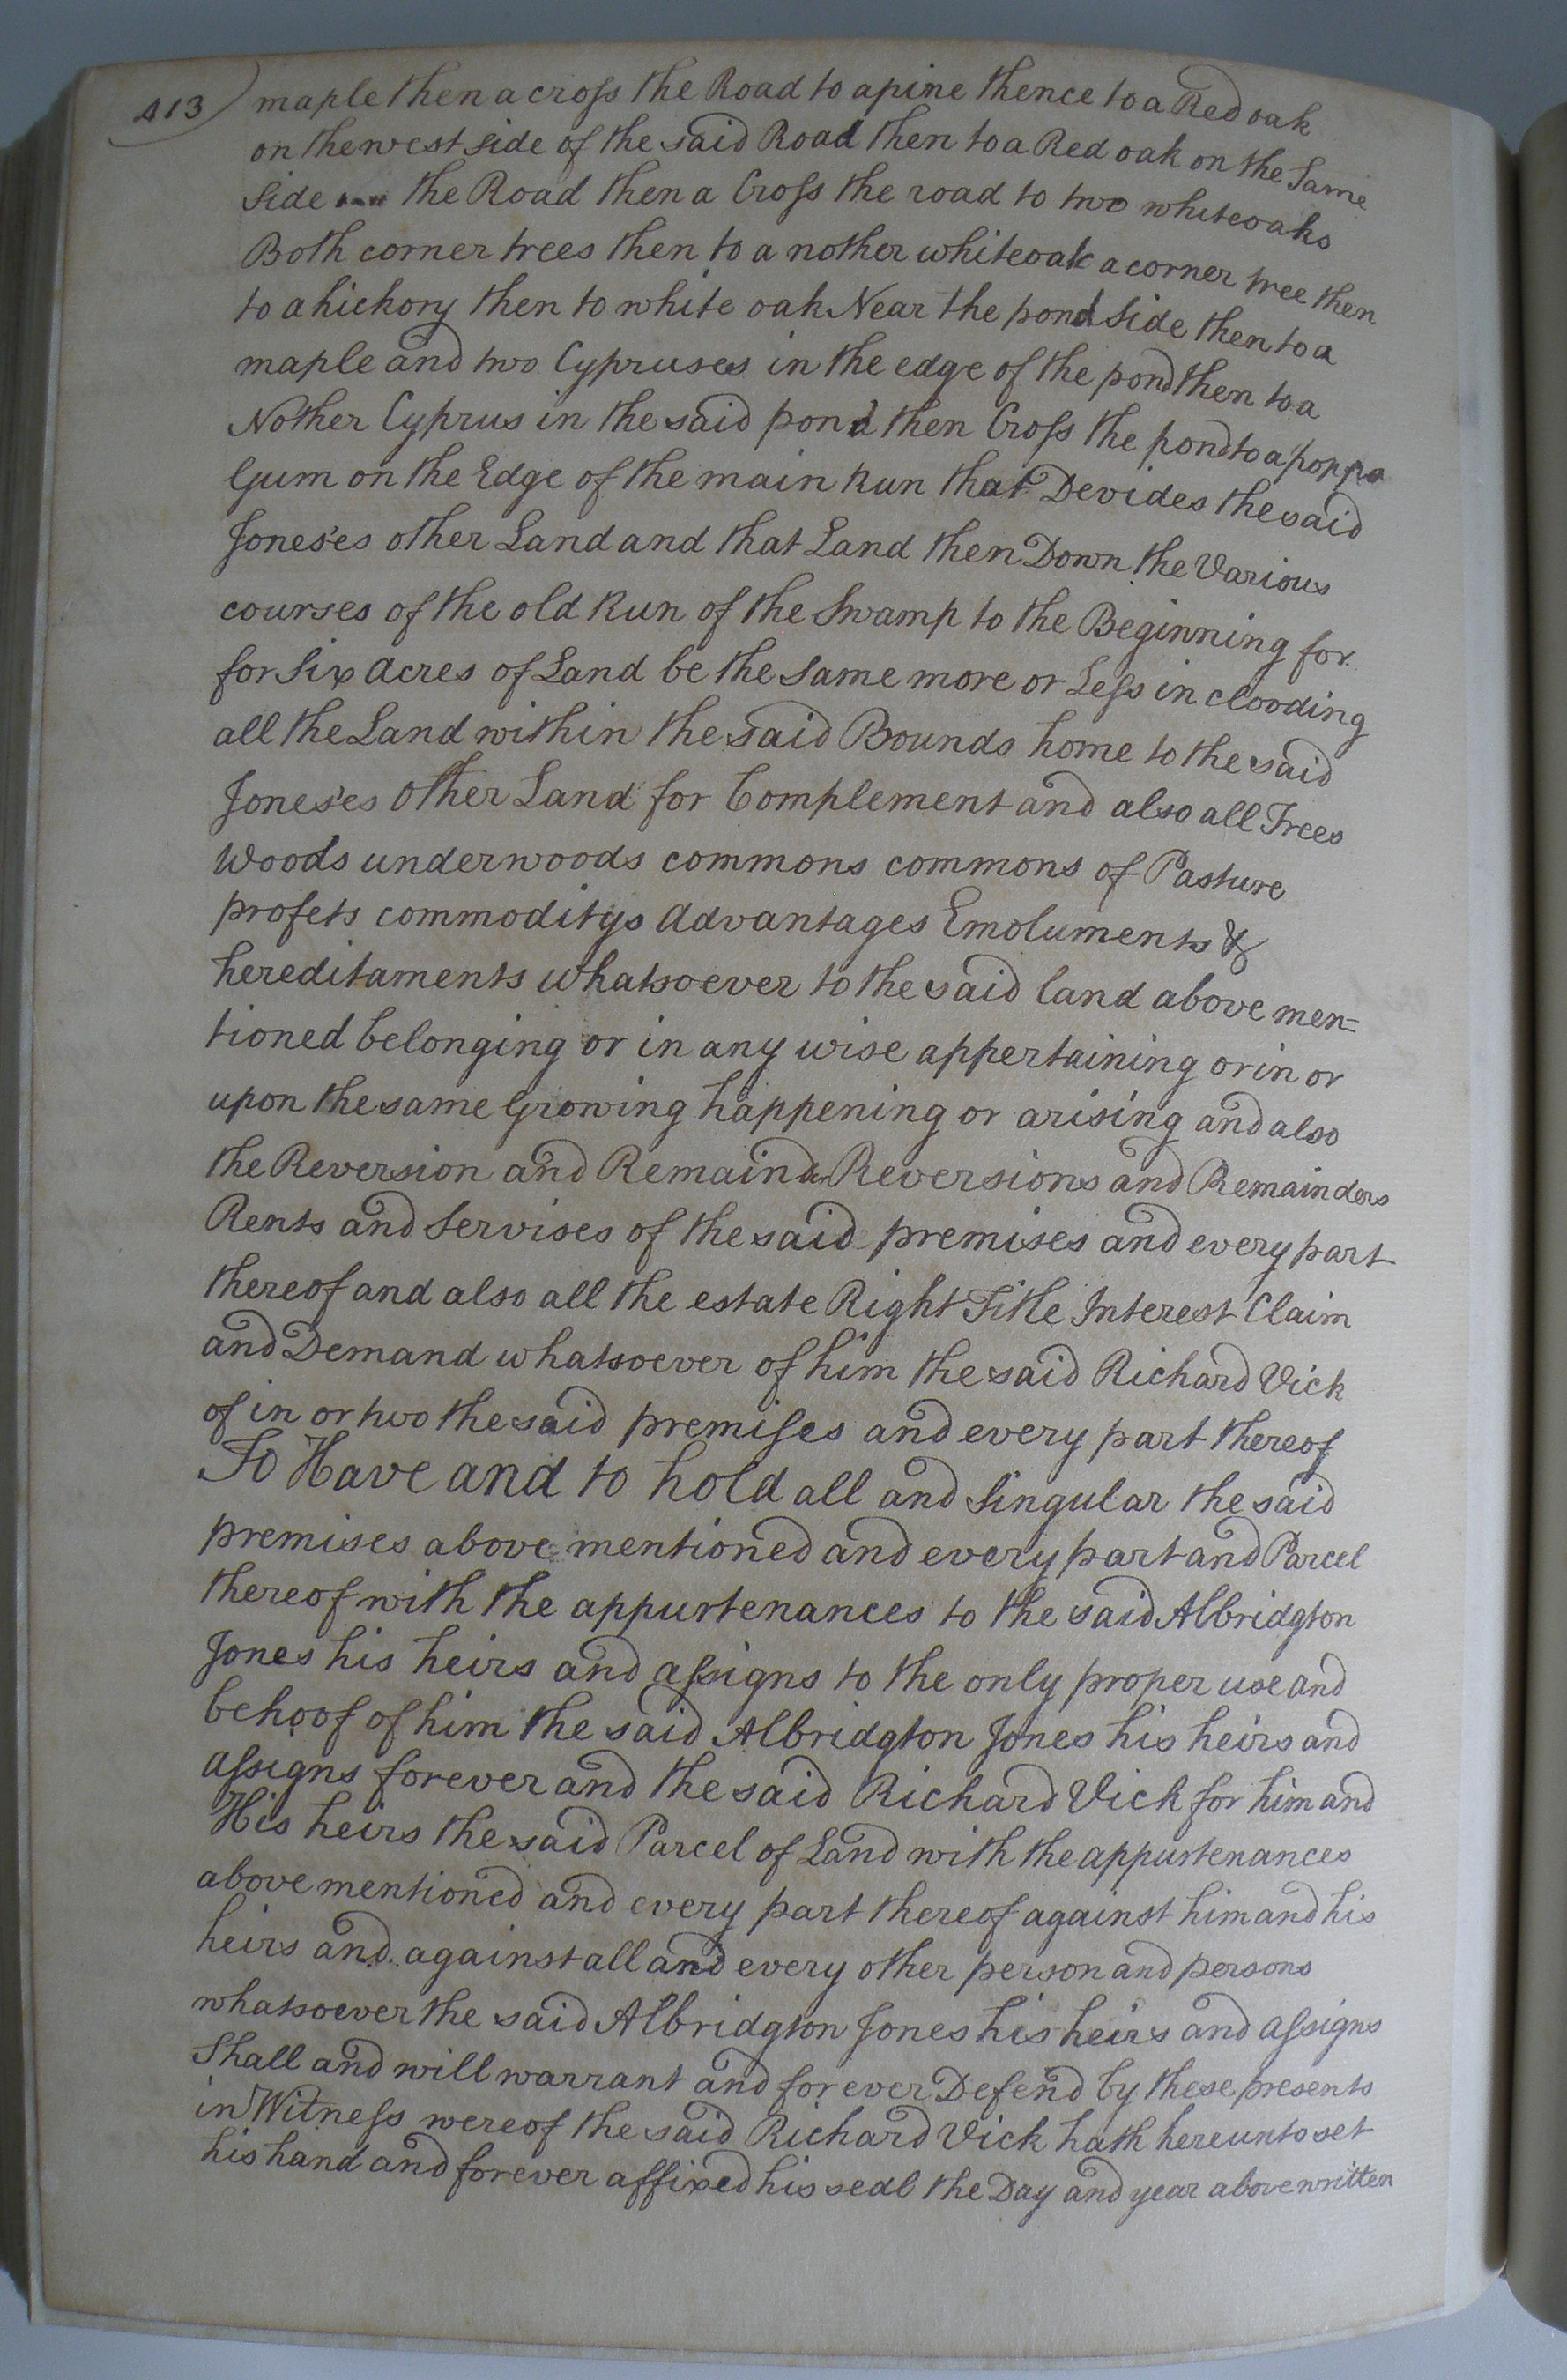 413) maple then a cross the Road to a pine thence to a Red oak
on the west side of the said Road then to a Red oak on the Same
Side the Road then a Cross the road to two white oaks
Both corner trees then to a nother white oak a corner tree then
to a hickory then to white oak Near the pond Side then to a
maple and two Cypruses in the edge of the pond then to a
Nother Cyprus in the said pond then Cross the pond to a
Gum on the Edge of the main Run that Devides the said
Joneses other Land and that Land then Down the Various
courses of the old Run of the Swamp to the Beginning for
for Six acres of Land be the Same more or Less in clooding
all the Land within the said Bounds home to the said
Joneses other Land for Complement and also all Trees
Woods underwoods commons commons of Pasture
profets commoditys Advantages Emoluments &
hereditaments whatsoever to the said land above men=
tioned belonging or in any wise appertaining or in or
upon the same Growing happening or arising and also
the Reversion and Remainder Reversions and Remainders
Rents and Servises of the said premises and every part
thereof and also all the estate Right Title Interest Claim
and Demand whatsoever of him the said Richard Vick
of in or two the said premises and every part thereof
To Have and to hold all and Singular the said
premises above mentioned and every part and Parcel
thereof with the appurtenances to the said Albridgton
Jones his heirs and assigns to the only proper use and
behoof of him the said Albridgton Jones his heirs and
assigns forever and the said Richard Vick for him and
His heirs the said Parcel of Land with the appurtenances
above mentioned and every part thereof against him and his
heirs and against all and every other person and persons
whatsoever the said Albridgton Jones his heirs and assigns
Shall and will warrant and for ever Defend by these presents
in Witness wereof the said Richard Vick hath hereunto set
his hand and forever affixed his seal the Day and year above written